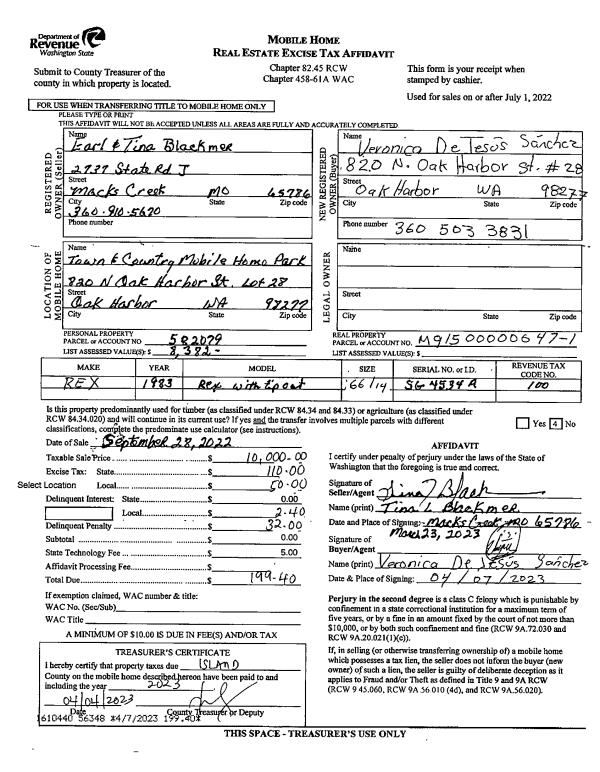 Department of
Revenue
Washington State
MOBILE HOME
REAL ESTATE EXCISE TAX AFFIDAVIT
Submit to County Treasurer of the
county in which property is located.
Chapter 82.45 RCW
Chapter 458-61A WAC
This form is your receipt when
stamped by cashier.
Used for sales on or after July 1, 2022
FOR USE WHEN TRANSFERRING TITLE TO MOBILE HOME ONLY
PLEASE TYPE OR PRINT
THIS AFFIDAVIT WILL NOT BE ACCEPTED UNLESS ALL AREAS ARE FULLY AND ACCURATELY COMPLETED
REGISTERED OWNER (Seller)
Name
Earl & Tina Blackmer
2737 State Rd J
Street
Macks Creek MO 65786
City State Zip code
360-910-5670
Phone number
NEW REGISTERED OWNER (Buyer)
Name
Veronica De Jesús Sánchez
820 N. Oak Harbor St. # 28
Street
Oak Harbor WA 98277
City State Zip code
Phone number 360 503 3831
LOCATION OF MOBILE HOME
Name
Town & Country Mobile Home Park
820 N Oak Harbor St. Lot 28
Street
Oak Harbor WA 98277
City State Zip code
LEGAL OWNER
Name
Street
City State Zip code
PERSONAL PROPERTY
PARCEL or ACCOUNT NO. 502079
LIST ASSESSED VALUE(S): $ 8,382-
REAL PROPERTY
PARCEL or ACCOUNT NO. M915000000647-1
LIST ASSESSED VALUE(S): $
MAKE YEAR MODEL SIZE SERIAL NO. or I.D. REVENUE TAX CODE NO.
REX 1983 Rex with tipout 66/14 SG 4534 A 100
Is this property predominantly used for timber (as classified under RCW 84.34 and 84.33) or agriculture (as classified under
RCW 84.34.020) and will continue in its current use? If yes and the transfer involves multiple parcels with different
classifications, complete the predominate calculator (see instructions).
Yes 4 No
Date of Sale : September 28, 2022
Taxable Sale Price $ 10,000.00
Excise Tax: State $ 110.00
Select Location Local $ 50.00
Delinquent Interest: State $ 0.00
Local $ 2.40
Delinquent Penalty $ 32.00
Subtotal $ 0.00
State Technology Fee $ 5.00
Affidavit Processing Fee $
Total Due $ 199.40
If exemption claimed, WAC number & title:
WAC No. (Sec/Sub)
WAC Title
A MINIMUM OF $10.00 IS DUE IN FEE(S) AND/OR TAX
AFFIDAVIT
I certify under penalty of perjury under the laws of the State of
Washington that the foregoing is true and correct.
Signature of
Seller/Agent
Name (print) Tina L Blackmer
Date and Place of Signing: Macks Creek MO 65786
March 23, 2023
Signature of
Buyer/Agent
Name (print) Veronica De Jesus Sánchez
Date & Place of Signing: 04 / 07 / 2023
Perjury in the second degree is a class C felony which is punishable by
confinement in a state correctional institution for a maximum term of
five years, or by a fine in an amount fixed by the court of not more than
$10,000, or by both such confinement and fine (RCW 9A.72.030 and
RCW 9A.20.021(1)(c)).
If, in selling (or otherwise transferring ownership of) a mobile home
which possesses a tax lien, the seller does not inform the buyer (new
owner) of such a lien, the seller is guilty of deliberate deception as it
applies to Fraud and/or Theft as defined in Title 9 and 9A RCW
(RCW 9.45.060, RCW 9A.56.010 (4d), and RCW 9A.56.020).
TREASURER'S CERTIFICATE
I hereby certify that property taxes due ISLAND
County on the mobile home described hereon have been paid to and
including the year 2023
04/04/2023
Date County Treasurer or Deputy
1610440 56348 *4/7/2023 199.40*
THIS SPACE - TREASURER'S USE ONLY